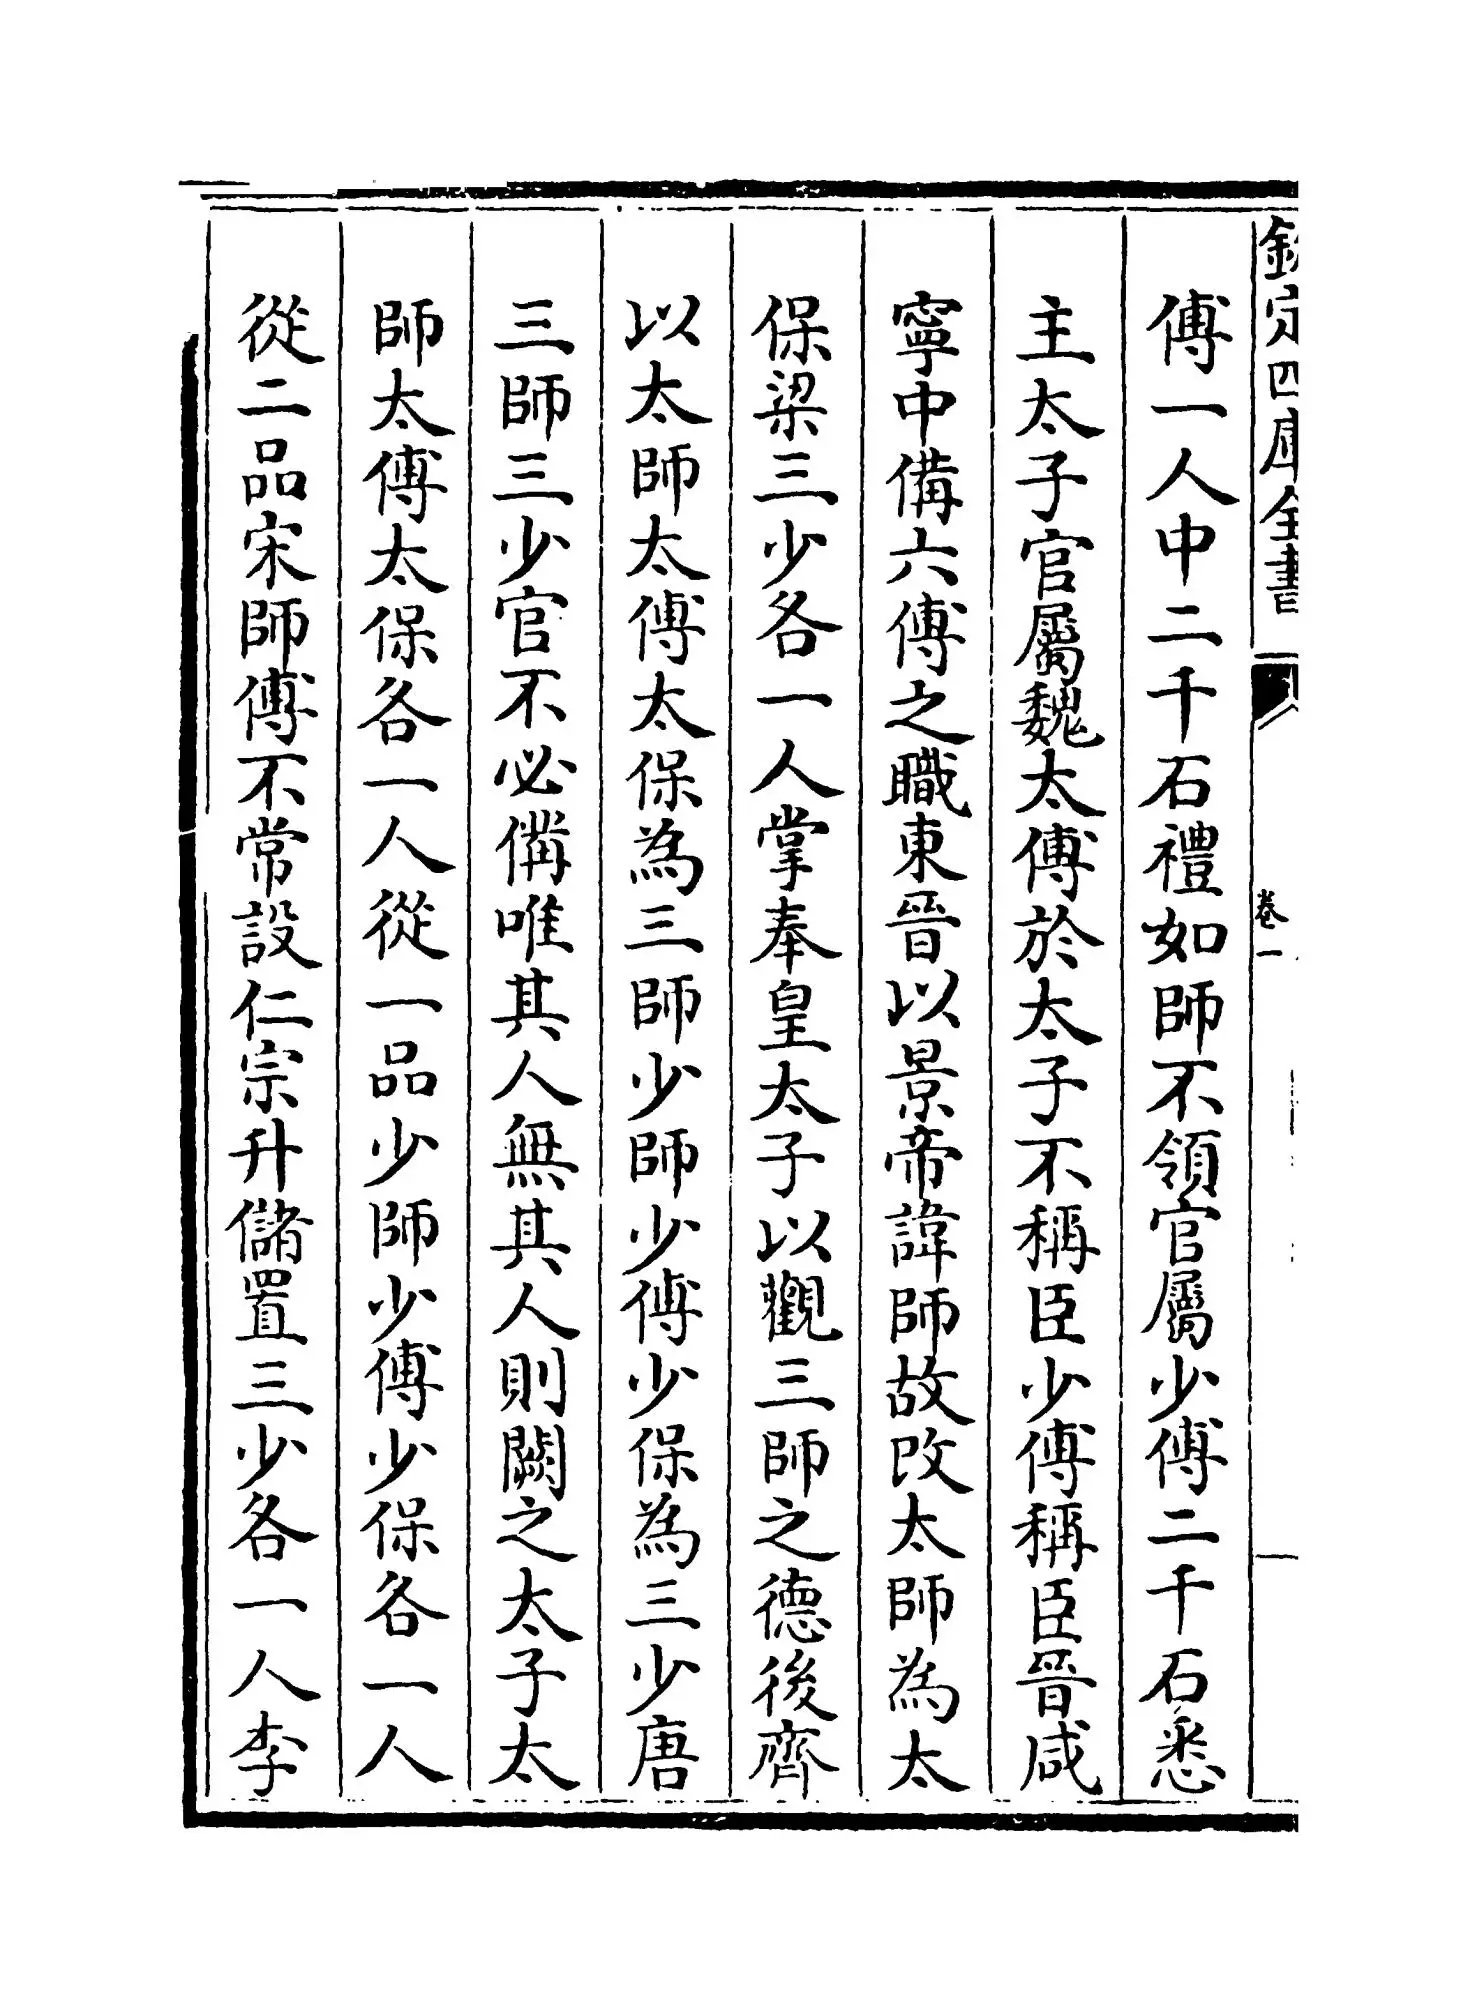 欽定四庫全書
卷一
傅一人中二千石禮如師不領官屬少傅二千石悉
主太子官屬魏太傅於太子不稱臣少傅稱臣晉咸
寧中備六傅之職東晉以景帝諱師故改太師為太
保梁三少各一人掌奉皇太子以觀三師之德後齊
以太師太傅太保為三師少師少傅少保為三少唐
三師三少官不必備唯其人無其人則闕之太子太
師太傅太保各一人從一品少師少傅少保各一人
從二品宋師傅不常設仁宗升儲置三少各一人李